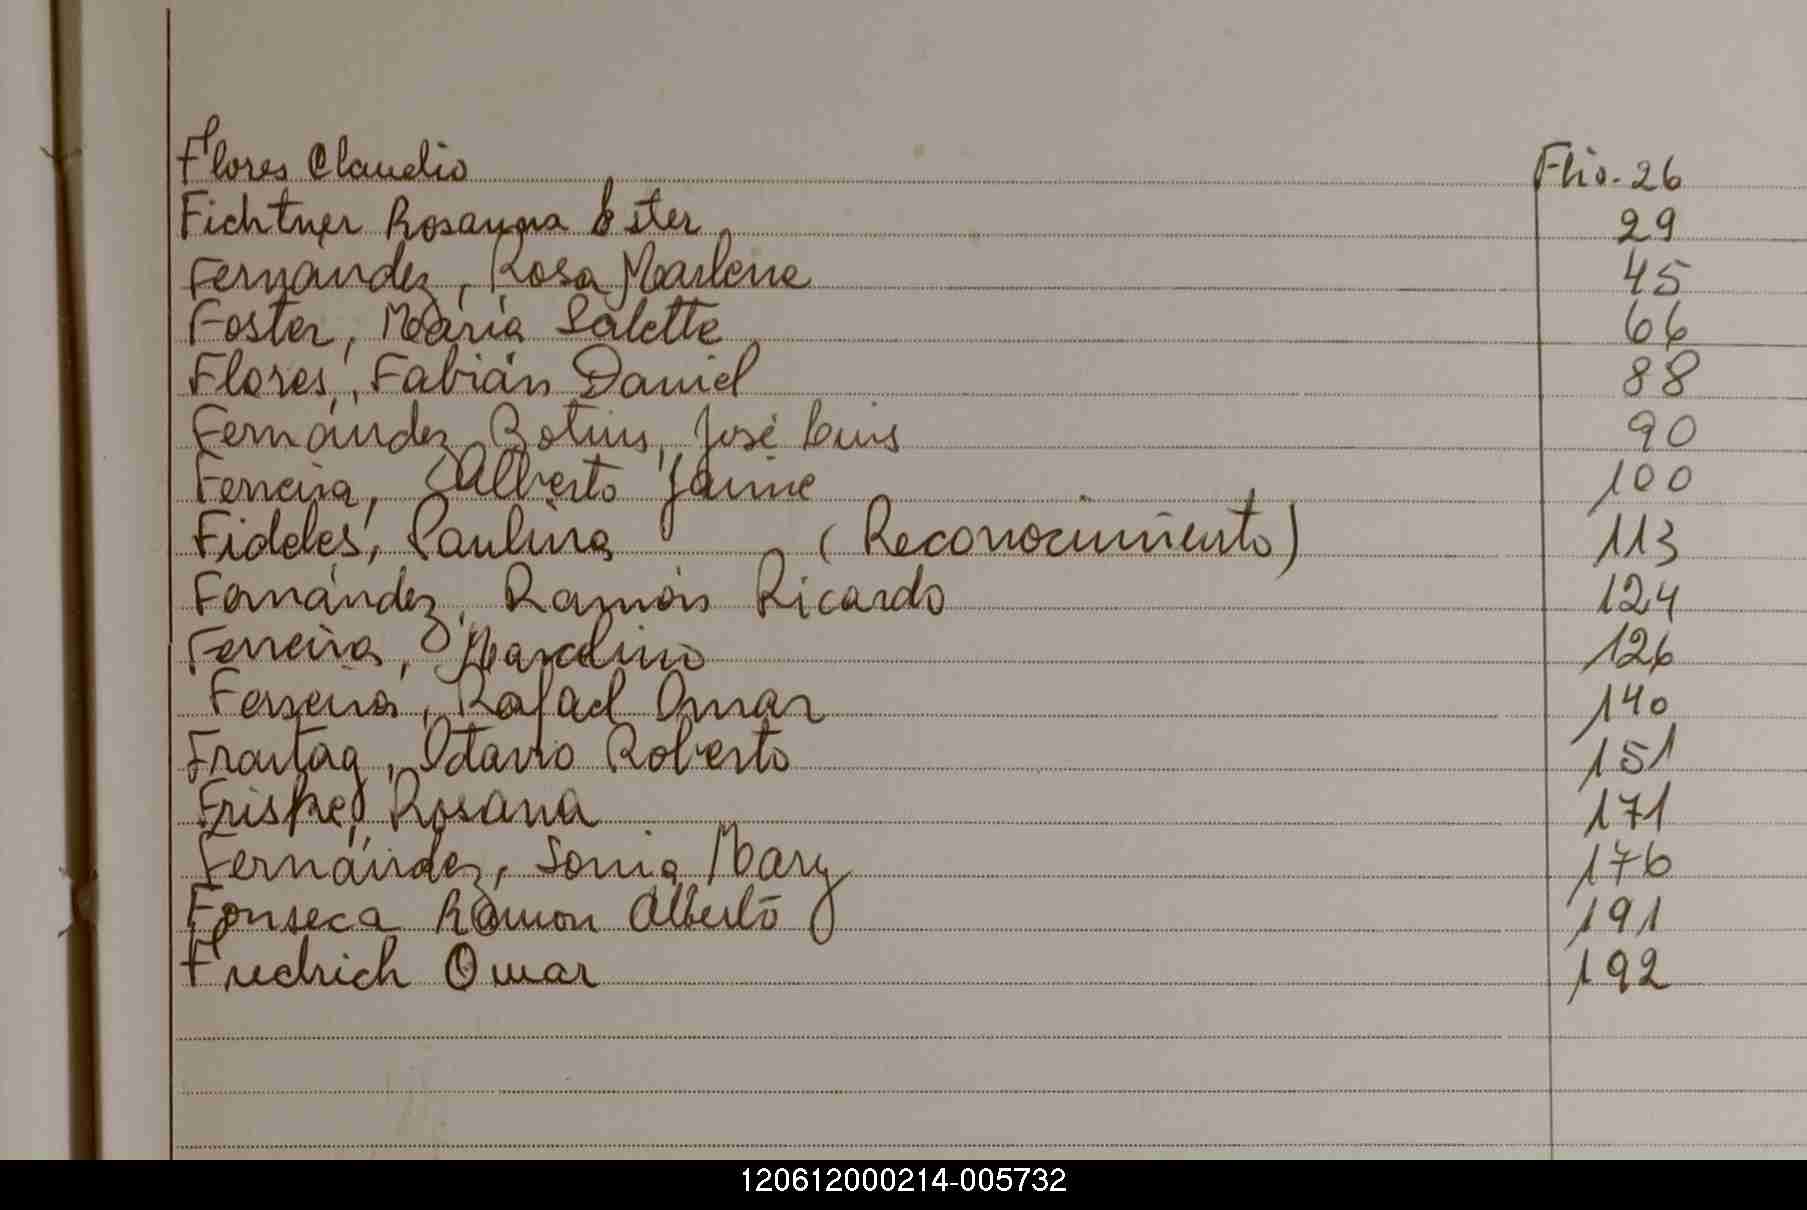 Flores Claudio Flio. 26
Fichtner Rosanna Ester 29
Fernandez, Rosa Marlene 45
Foster, María Salette 66
Flores, Fabián Daniel 88
Fernández José Luis 90
Ferreira, Alberto Jaime 100
Fideles, Paulina (Reconocimiento) 113
Fernández, Ramón Ricardo 124
Ferreira, Marcelino 126
Ferreira, Rafael Omar 140
Fraitag, Otavio Roberto 151
Friske, Rosana 171
Fernández, Sonia Mary 176
Fonseca Ramon Alberto 191
Fredrich Omar 192
120612000214-005732